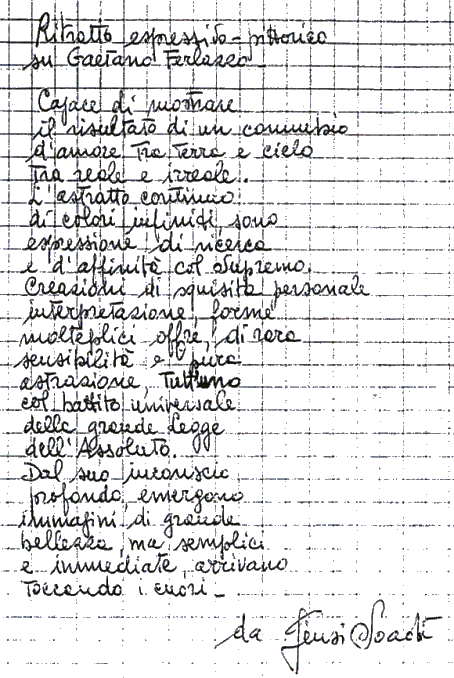 Ritratto espressivo-pittorico
su Gaetano Ferlazzo

Capace di mostrare
il risultato di un connubio
d'amore tra terra e cielo
tra reale e irreale.
L'astratto continuo
di colori infiniti, sono
espressione di ricerca
e d'affinità col Supremo.
Creazioni di squisita personale
interpretazione, forme
molteplici offre, di rara
sensibilità e pura
astrazione, tutt'uno
col battito universale
della grande Legge
dell'Assoluto.
Dal suo inconscio
profondo, emergono
immagini di grande
bellezza, ma semplici
e immediate, arrivano
toccando i cuori_

da